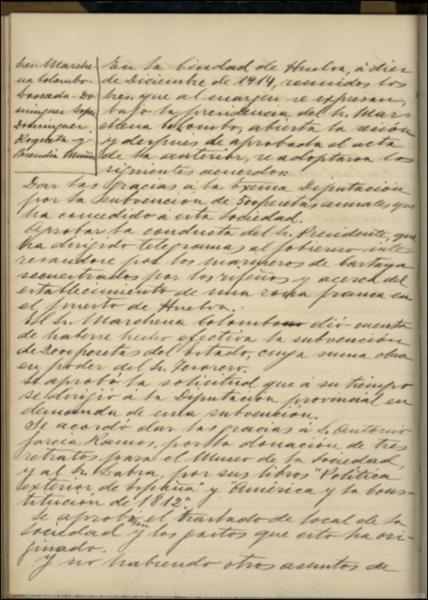 Sres. Marche-
na Colombo-
Dominguez Lopez
Dominguez
Roqueta y
Terradas Muñoz
En la Ciudad de Huelva, á diez
de Diciembre de 1914, reunidos los
Sres. que al margen se expresan,
bajo la presidencia del Sr. Mar-
chena Colombo, abierta la sesión
y despues de aprobada el acta
de la anterior, se adoptaron los
siguientes acuerdos:
Dar las gracias á la Excma Diputación
por la subvención de 500 pesetas anuales que
ha concedido á esta Sociedad.
Aprobar la conducta del Sr. Presidente, que
ha dirigido telegramas al Gobierno inte-
resandose por los marineros de Cartaya
secuestrados por los rifeños y acerca del
establecimiento de una zona franca en
el puerto de Huelva.
El Sr. Marchena Colombo dió cuenta
de haberse hecho efectiva la subvención
de 2000 pesetas del Estado, cuya suma obra
en poder del Sr. Tesorero.
Se aprobó la solicitud que á su tiempo
se dirigió á la Diputación provincial en
demanda de una subvención.
Se acordó dar las gracias á D. Antonio
García Ramos, por la donación de tres
retratos para el Museo de la Sociedad,
y al Sr. Labra, por sus libros "Política
exterior de España" y "América y la Cons-
titución de 1812".
Se aprobó el traslado de local de la
Sociedad y los gastos que esto ha ori-
ginado.
Y no habiendo otros asuntos de